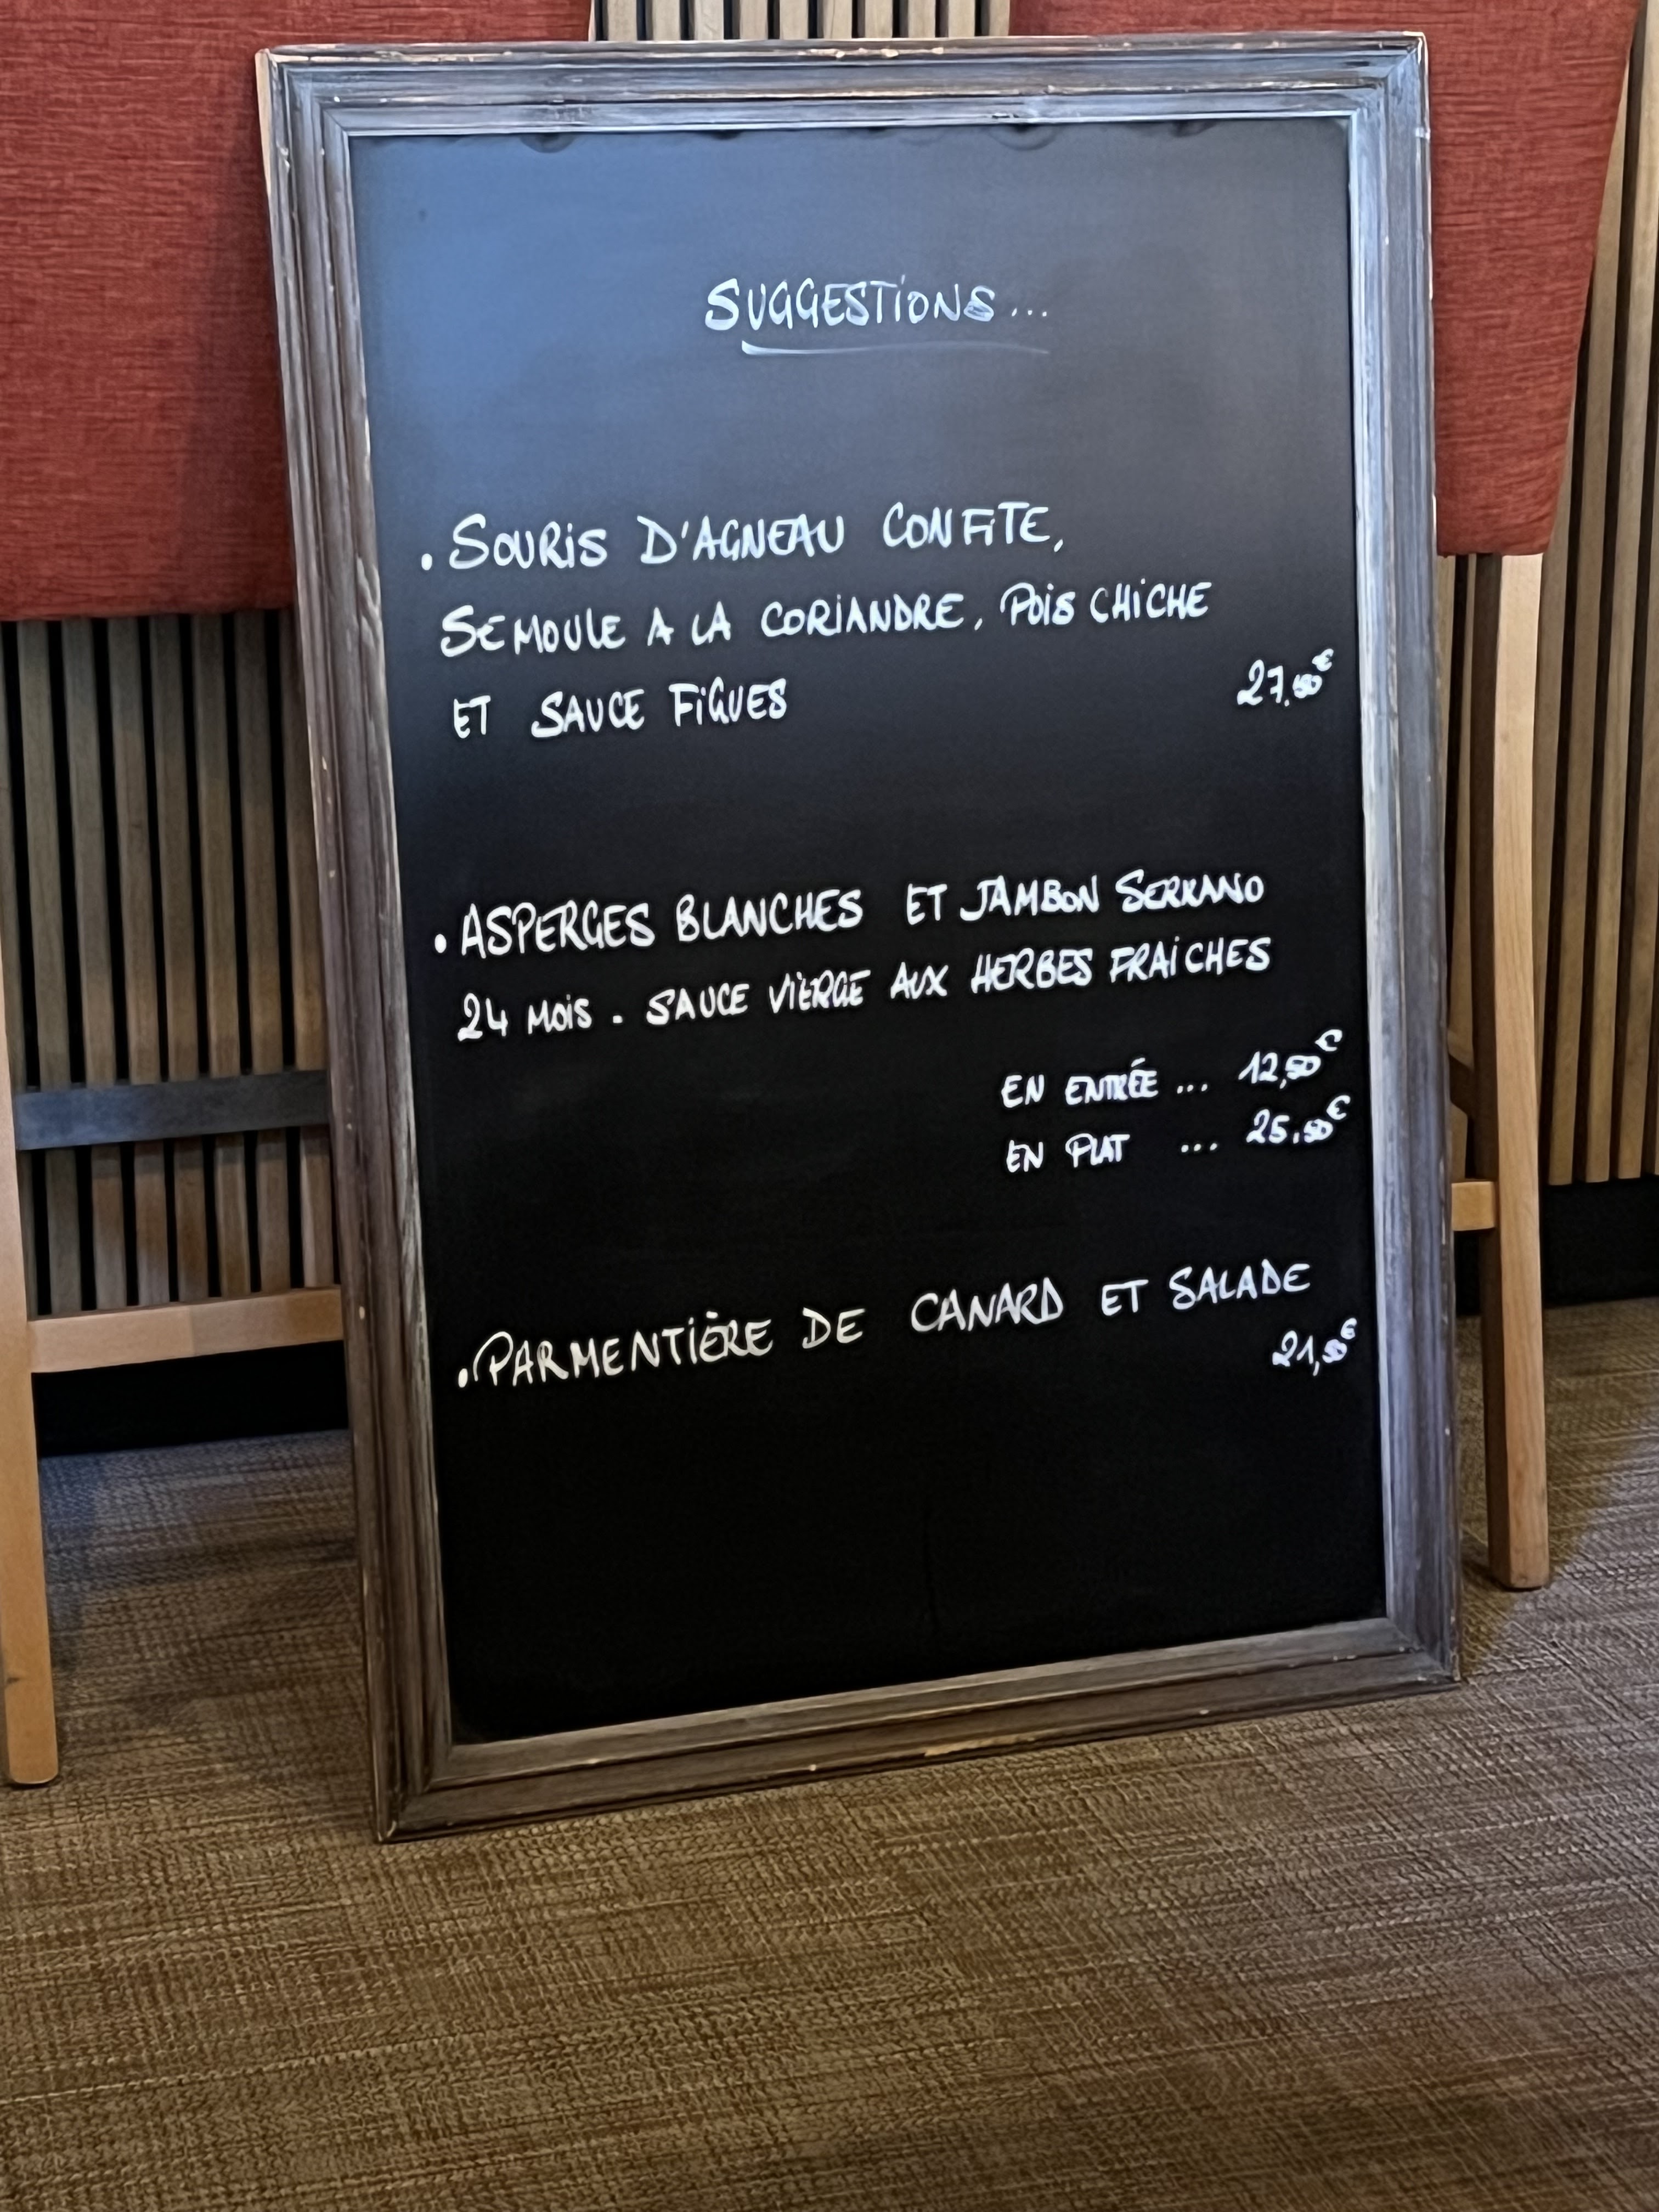 SUGGESTIONS...
. SOURIS D'AGNEAU CONFITE,
SEMOULE A LA CORIANDRE, POIS CHICHE
ET SAUCE FIGUES 27.50€
. ASPERGES BLANCHES ET JAMBON SERRANO
24 MOIS . SAUCE VIERGE AUX HERBES FRAICHES
EN ENTRÉE ... 12,50€
EN PLAT ... 25,50€
. PARMENTIÈRE DE CANARD ET SALADE
21,50€